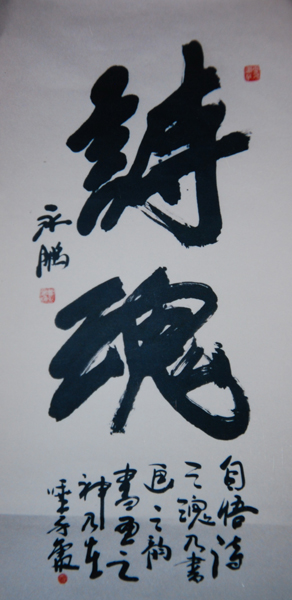 詩魂
永鹏
自悟诗
之魂乃书
画之韵
書画之
神乃在